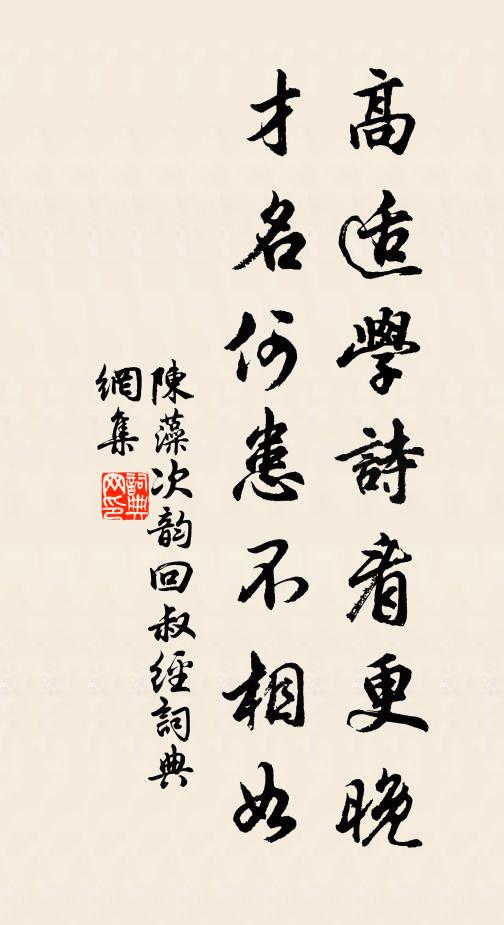 高适學詩看更晚
才名何患不相如
陳藻次韵回叔經詞典
網集
詞典
网印